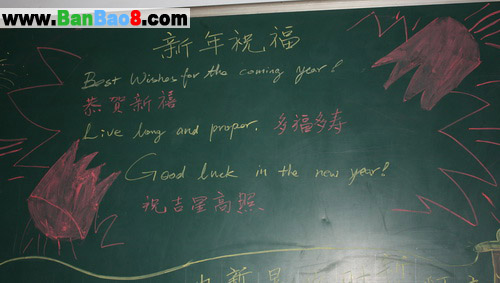 www.BanBao8.com
新年祝福
Best Wishes for the coming year!
恭贺新禧
Live long and proper. 多福多寿
Good luck in the new year!
祝吉星高照